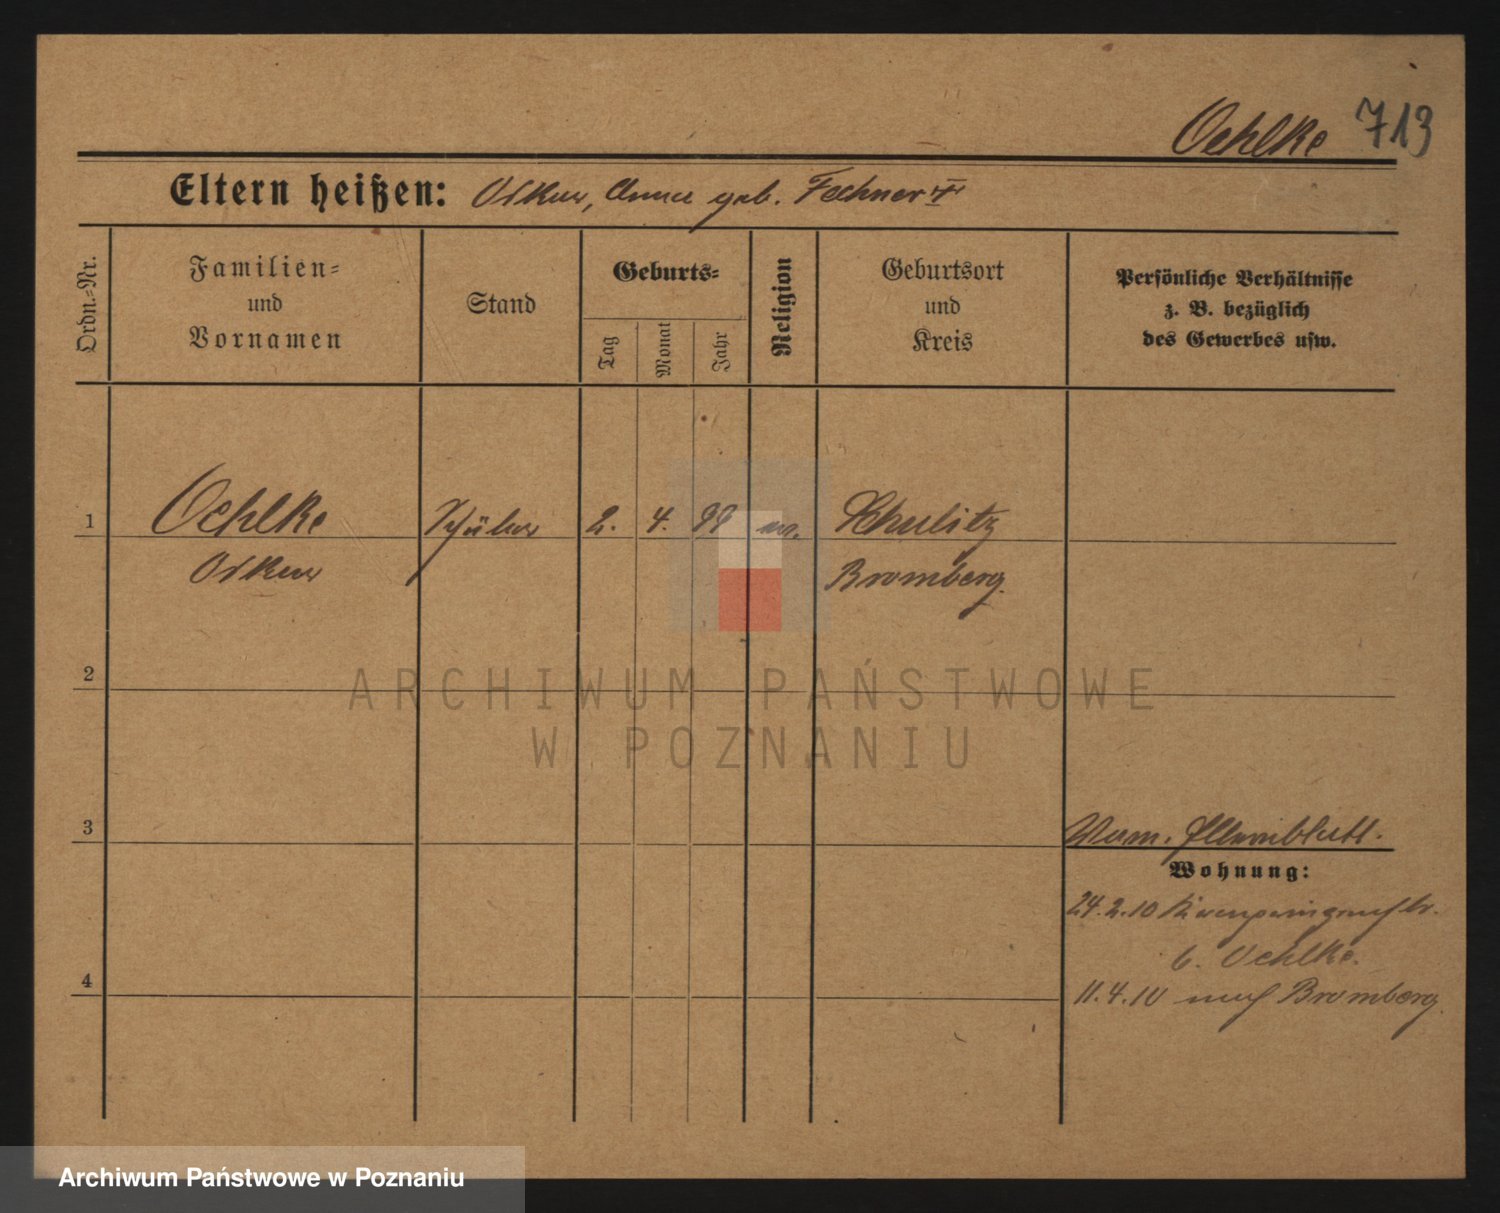 Oehlke 713
Eltern heißen: Oskar, Anna geb. Fechner
Ordn.-Nr.
Familien-
und
Vornamen
Stand
Geburts-
Tag
Monat
Jahr
Religion
Geburtsort
und
Kreis
Persönliche Verhältnisse
z. B. bezüglich
des Gewerbes usw.
1 Oehlke Schüler 2. 4. 99 ev. Schulitz
Oskar Bromberg.
2
ARCHIWUM PAŃSTWOWE
W POZNANIU
3
Wohnung:
24.2.10
b. Oehlke.
4
11.4.10 nach Bromberg.
Archiwum Państwowe w Poznaniu